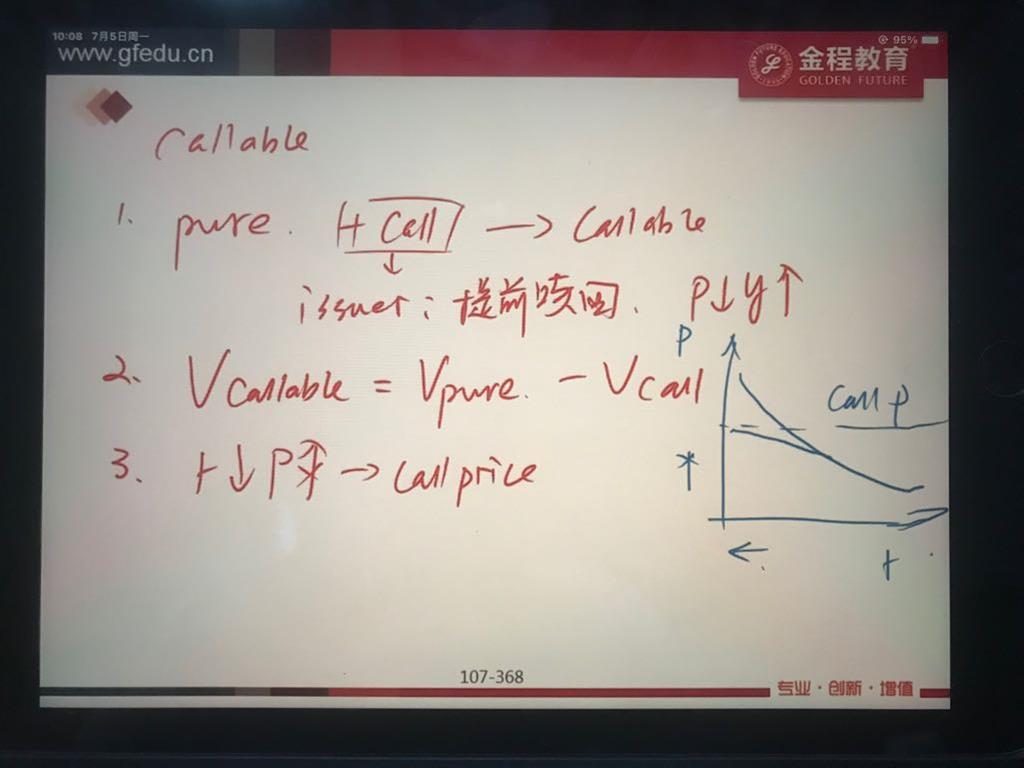 10:08 7月5日周一
95%
www.gfedu.cn
金程教育
GOLDEN FUTURE
callable
1. pure. + call → callable
↓
issuer: 提前赎回. P↓ y↑
2. Vcallable = Vpure. - Vcall
3. r↓ P↑ → call price
P
call p
↑
← r
107-368
专业·创新·增值